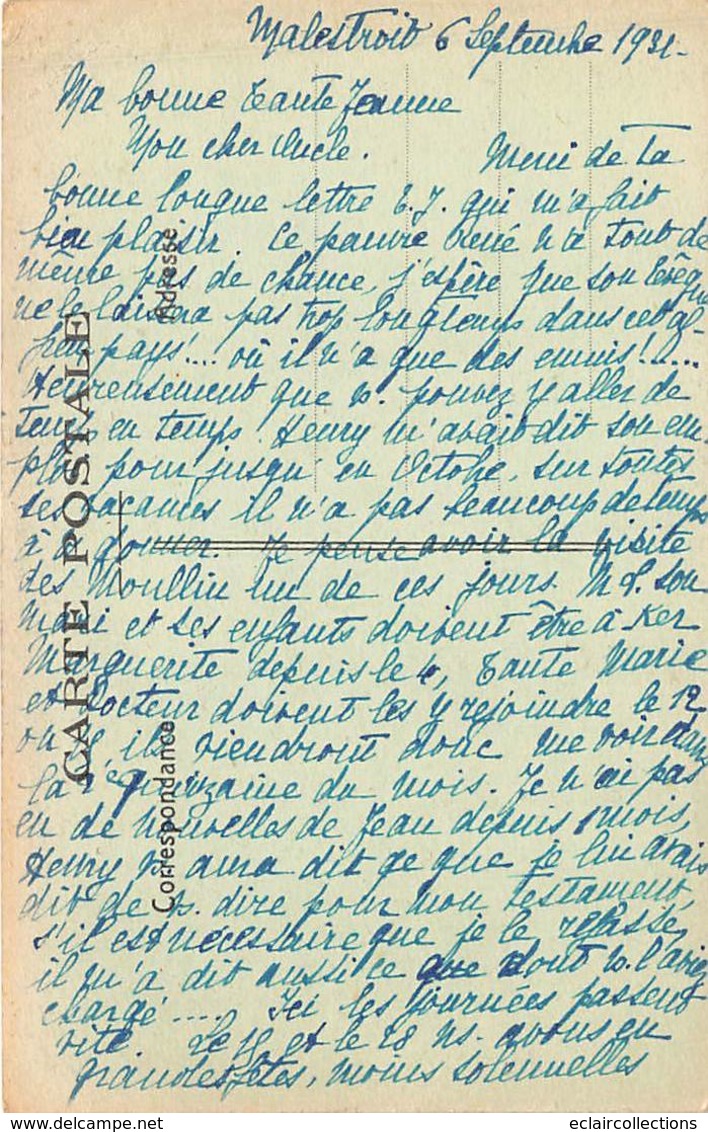 Malestroit 6 Septembre 1931-
Ma bonne Tante Jeanne
Mon cher Oncle.
Merci de ta
bonne longue lettre T. J. qui m'a fait
bien plaisir. Ce pauvre René n'a tout de
même pas de chance, j'espère que son Evêque
ne le laissera pas trop longtemps dans cet af-
freux pays!.... où il n'a que des ennuis!.....
Heureusement que v. pouvez y aller de
temps en temps. Henry m'avait dit son em-
ploi pour jusqu'en Octobre, sur toutes
ses vacances il n'a pas beaucoup de temps
à donner. Je pense avoir la visite
des Moullin un de ces jours. M. L. son
Mari et ses enfants doivent être à Ker
Marguerite depuis le 4, Tante Marie
et Docteur doivent les y rejoindre le 12
ou ils viendront donc me voir dans
la 2e quinzaine du mois. Je n'ai pas
eu de nouvelles de Jean depuis 1 mois,
Henry v. aura dit ce que je lui avais
dit de v. dire pour mon testament,
s'il est nécessaire que je le refasse,
il m'a dit aussi ce dont v. l'aviez
chargé..... Ici les journées passent
vite. Le et le 28 ns. avons eu
grandes fêtes, moins solennelles
CARTE POSTALE
Correspondance
Adresse
eclaircollections.com